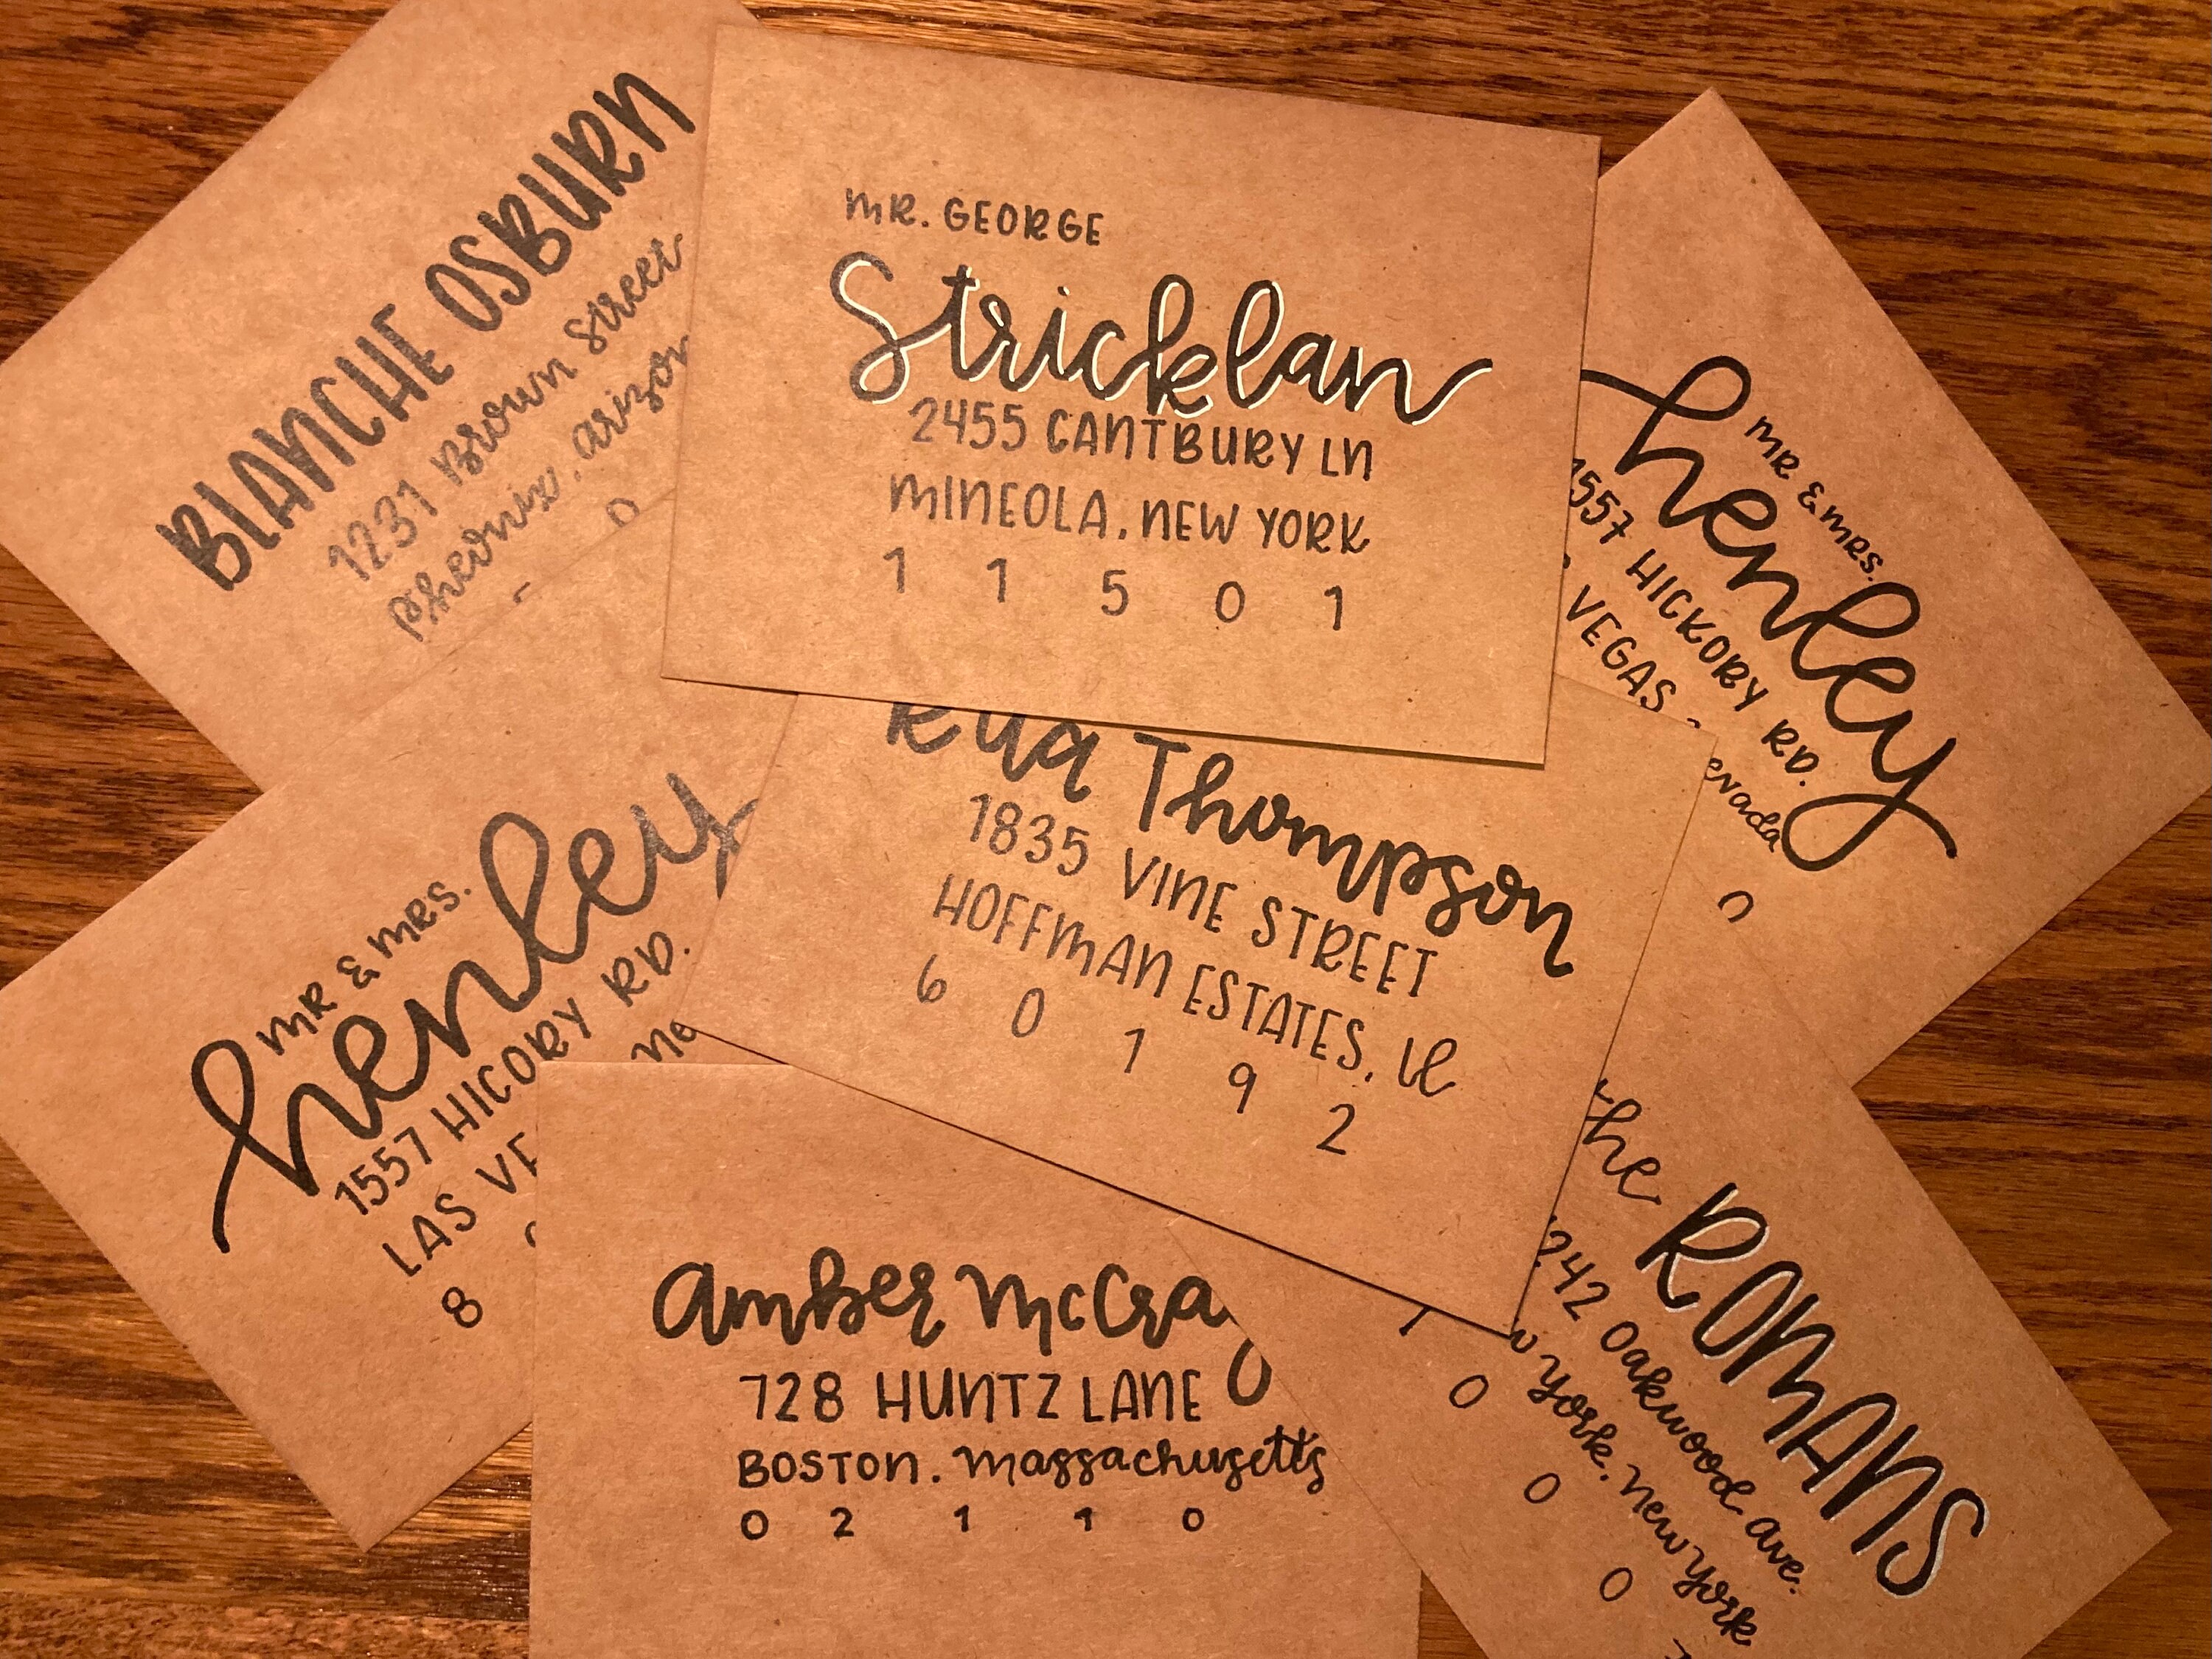 BLANCHE OSBURN
1231 Brown Street
Pheonix, arizon
0
MR. GEORGE
Stricklan
2455 CANTBURY LN
MINEOLA, NEW YORK
1 1 5 0 1
MR & MRS.
henley
1557 HICKORY RD.
VEGAS, evada
0
MR & MRS.
henley
1557 HICORY RD.
LAS VE Ne
8
Thompson
1835 VINE STREET
HOFFMAN ESTATES, IL
6 0 1 9 2
amber mcCray
728 HUNTZ LANE
BOSTON, massachusetts
0 2 1 1 0
the ROMANS
242 Oakwood ave.
w York, new york
1 0 0 0